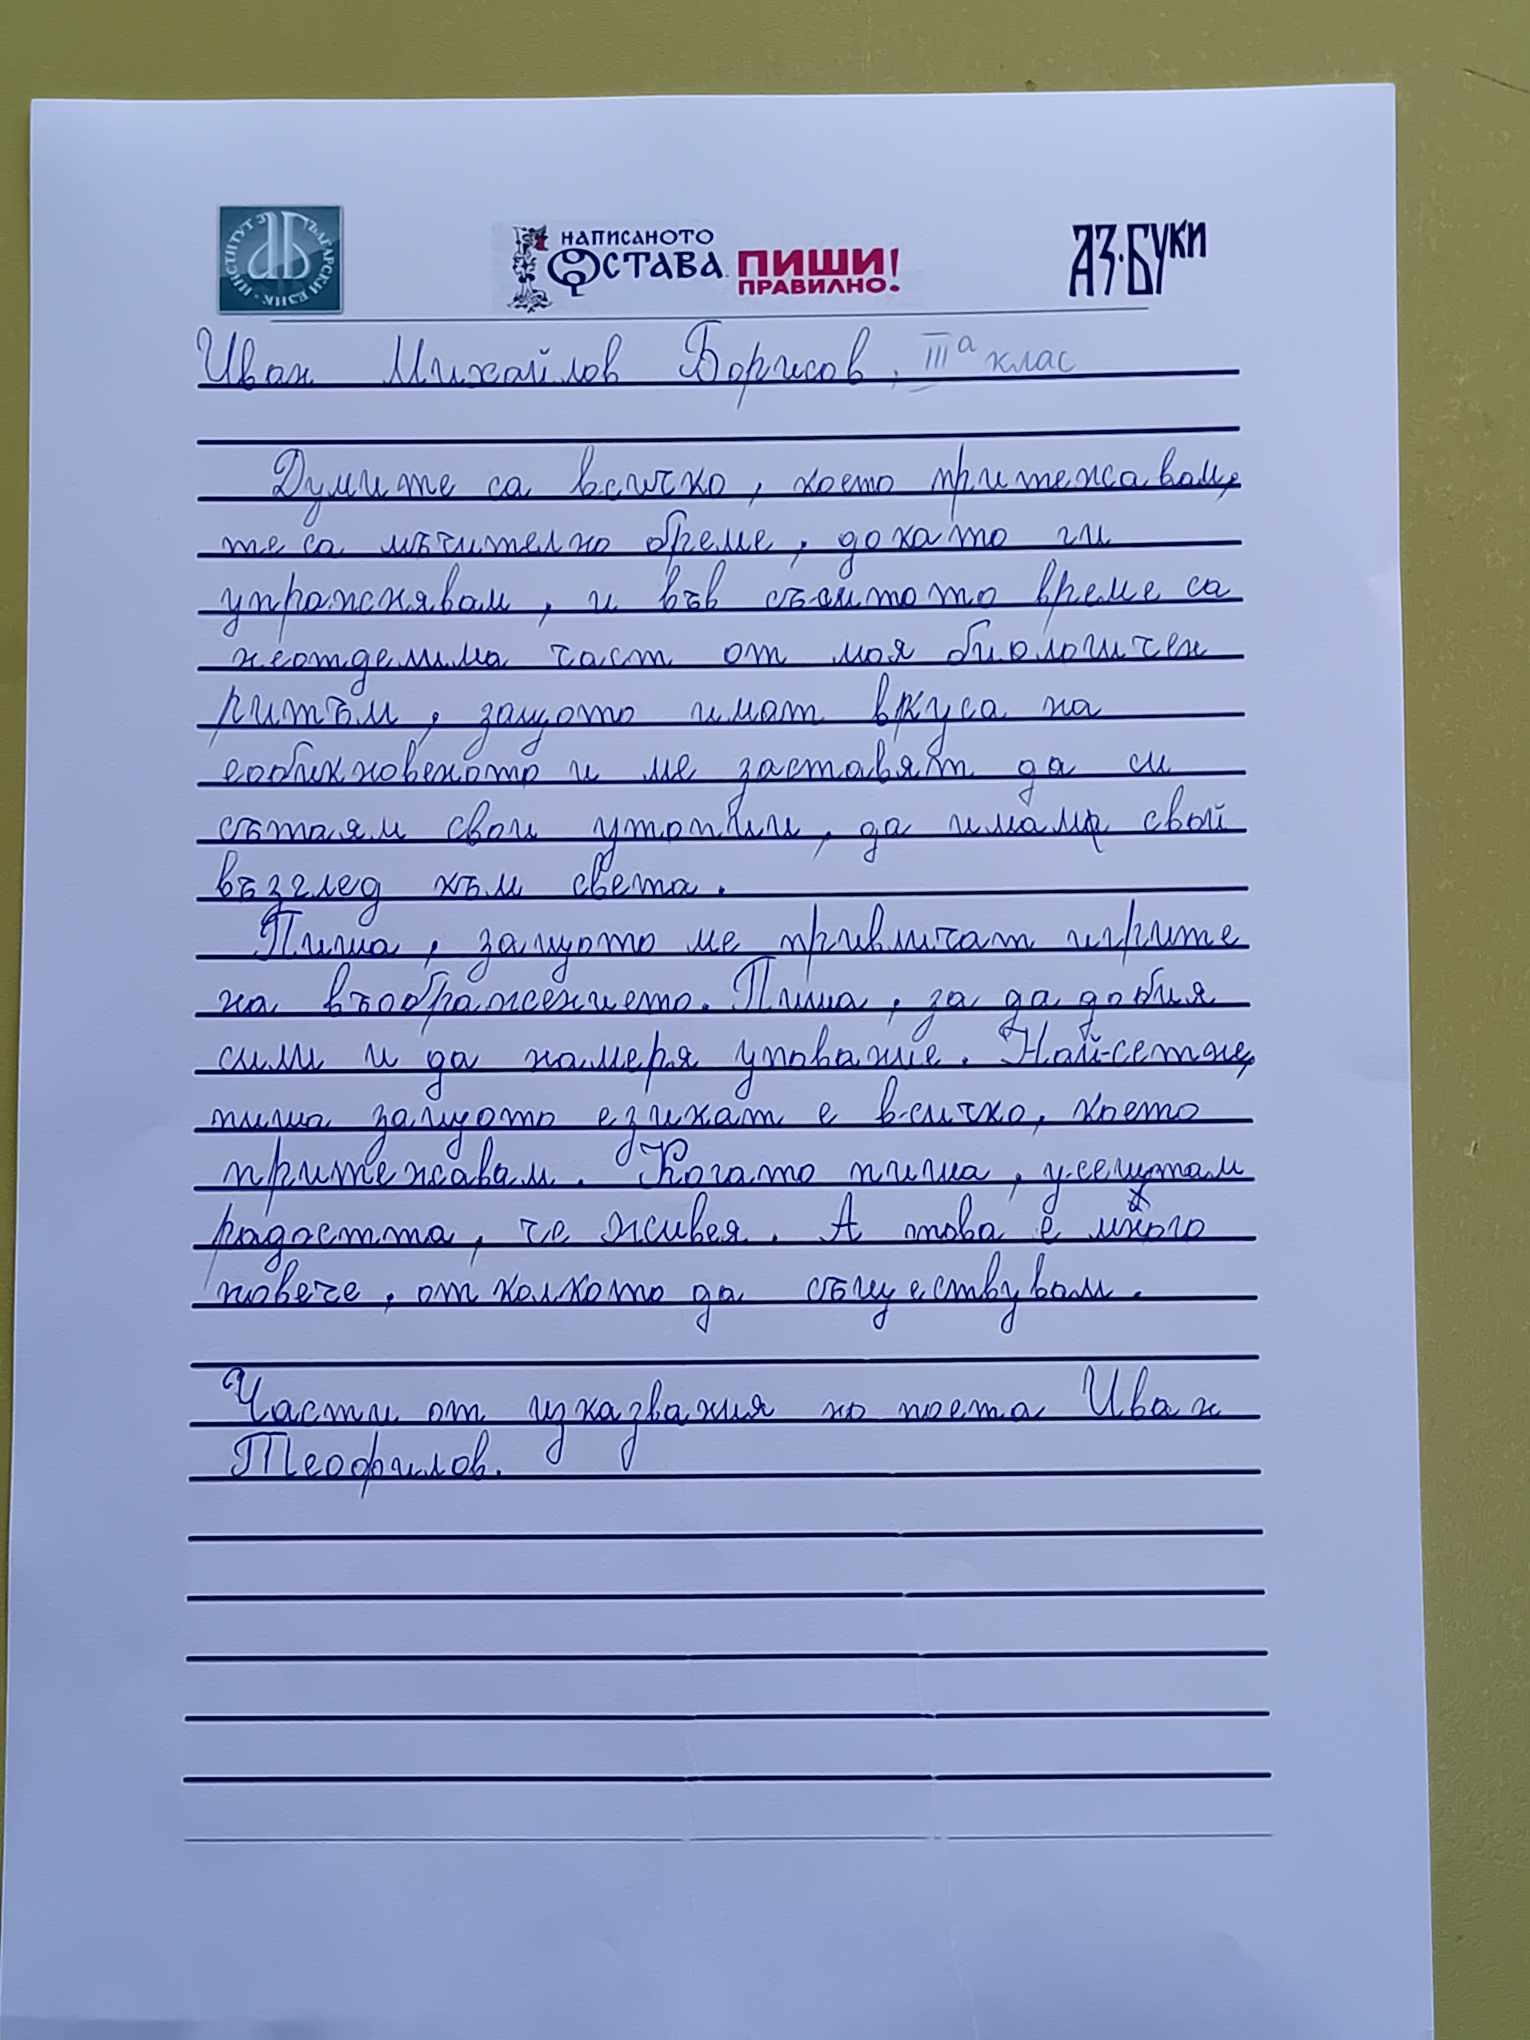 ИНСТИТУТ ЗА БЪЛГАРСКИ ЕЗИК
НАПИСАНОТО
ОСТАВА.
ПИШИ
ПРАВИЛНО!
АЗ·БУКИ
Иван Михайлов Борисов, IIIа клас
Думите са всичко, което притежавам,
те са мъчително бреме, докато ги
упражнявам, и във същитото време са
неотделима част от моя биологичен
ритъм, защото имат вкуса на
еобикновеното и ме заставят да си
сътаям свои утопии, да имам свой
възглед към света.
Пиша, защото ме привличат игрите
на въображението. Пиша, за да добия
сили и да намеря упование. Най-сетне,
пиша защото езикат е всичко, което
притежавам. Когато пиша, усещтам
радостта, че живея. А това е много
повече, отколкото да съществувам.
Части от изказвания на поета Иван
Теофилов.